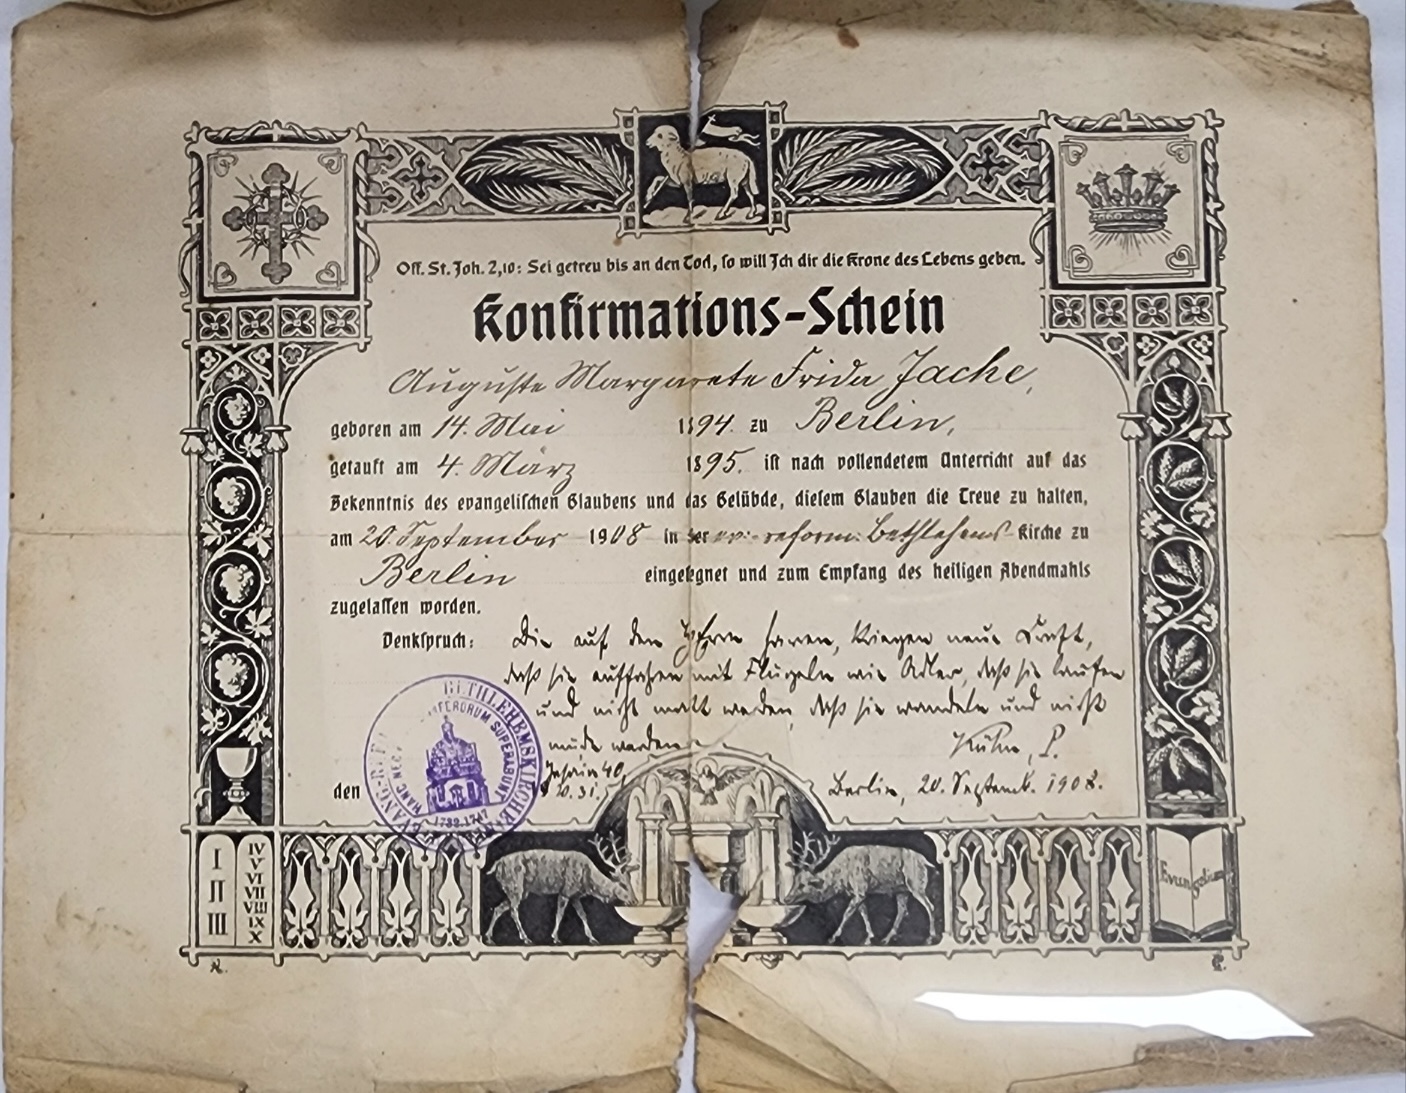 Off. St. Joh. 2,10: Sei getreu bis an den Tod, so will Ich dir die Krone des Lebens geben.
Konfirmations-Schein
Auguste Margarete Frida Jache,
geboren am 14. Mai 1894. zu Berlin,
getauft am 4. März 1895. ist nach vollendetem Unterricht auf das
Bekenntnis des evangelischen Glaubens und das Gelübde, diesem Glauben die Treue zu halten,
am 20. September 1908 in der ev.-reform. Bethlehems- Kirche zu
Berlin eingesegnet und zum Empfang des heiligen Abendmahls
zugelassen worden.
Denkspruch: Die auf den Herrn harren, kriegen neue Kraft,
daß sie auffahren mit Flügeln wie Adler, daß sie laufen
und nicht matt werden, daß sie wandeln und nicht
müde werden.
Kühn, P.
Jesaia 40,
V. 31.
den Berlin, 20. Septemb. 1908.
BETHLEHEMSKIRCHE
SUPERABUNT
HANC NEC
1732-1747
I
II
III
IV
V
VI
VII
VIII
IX
X
Evangelium